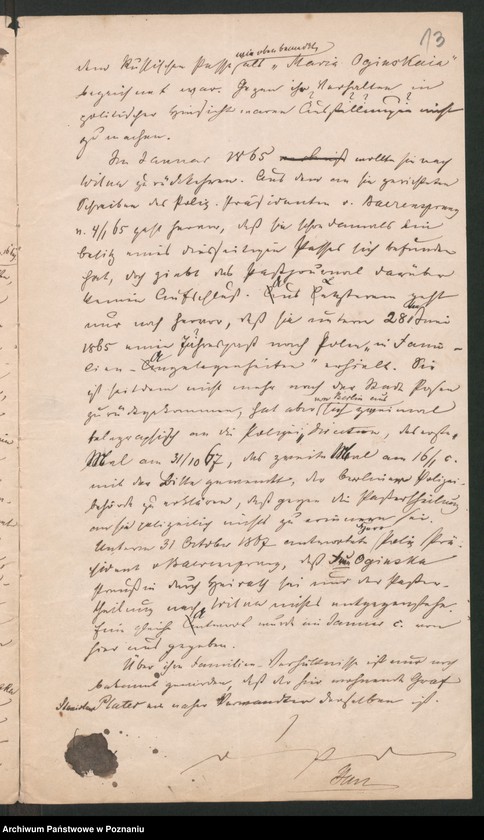 13
dem Russischen Passe wie oben bemerkt, als "Maria Oginskaia"
bezeichnet war. Gegen ihr Verhalten in
politischer Hinsicht waren Ausstellungen nicht
zu machen.
Im Januar 1865 wollte sie nach
Wilna zurückkehren. Aus dem an sie gerichteten
Schreiben des Poliz. Präsidenten v. Baerensprung
v. 4/1 65 geht hervor, daß sie schon damals im
Besitz eines diesseitigen Passes sich befunden
hat, doch giebt das Paßjournal darüber
keinen Aufschluß. Aus Letzterem geht
nur noch hervor, daß sie unterm 28
1865 einen Jahrespaß nach Polen "in Fami-
lien-Angelegenheiten" erhielt. Sie
ist seitdem nicht mehr nach der Stadt Posen
zurückgekommen, hat aber von Berlin aus sich zweimal
telegraphisch an die Polizei Direction, das erste
Mal am 31/10 67, das zweite Mal am 16/1 c.
mit der Bitte gewendet, der Berliner Polizei-
behörde zu erklären, daß gegen die Paßertheilung
an sie polizeilich nichts zu erinnern sei.
Unterm 31 October 1867 antwortete Herr Poliz. Prä-
sident v Baerensprung, daß Oginska
Preußin durch Heirath sei und der Paßer-
theilung nach Wilna nichts entgegenstehe.
Eine gleiche Antwort wurde im Januar c. von
hier aus gegeben.
Über ihre Familien-Verhältnisse ist nur noch
bekannt geworden, daß der hier wohnende Graf
Stanislaus Plater ein naher Verwandter derselben ist.
Archiwum Państwowe w Poznaniu